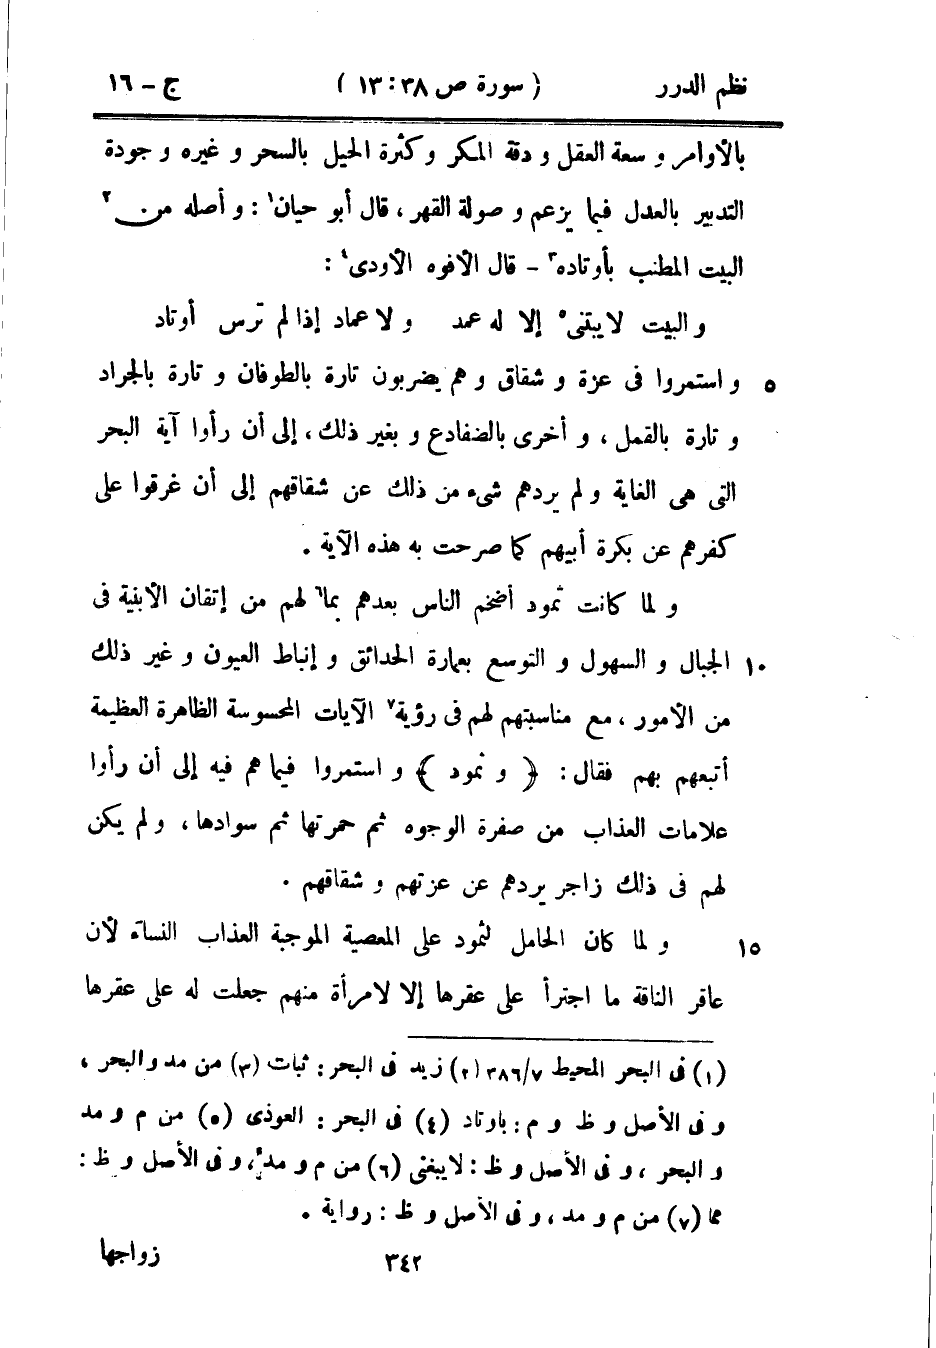 نظم الدرر ( سورة ص ٣٨ : ١٣ ) ج – ١٦
بالأوامر و سعة العقل و دقة المكر و كثرة الحيل بالسحر و غيره و جودة
التدبير بالعدل فيما يزعم و صولة القهر ، قال أبو حيان١ : و أصله من٢
البيت المطنب بأوتاده٣ – قال الأفوه الأودى٤ :
و البيت لا يبتنى٥ إلا له عمد و لا عماد إذا لم ترس أوتاد
٥ و استمروا فى عزة و شقاق و هم يضربون تارة بالطوفان و تارة بالجراد
و تارة بالقمل ، و أخرى بالضفادع و بغير ذلك ، إلى أن رأوا آية البحر
التى هى الغاية و لم يردهم شىء من ذلك عن شقاقهم إلى أن غرقوا على
كفرهم عن بكرة أبيهم كما صرحت به هذه الآية .
و لما كانت ثمود أضخم الناس بعدهم بما٦ لهم من إتقان الأبنية فى
١٠ الجبال و السهول و التوسع بعمارة الحدائق و إنباط العيون و غير ذلك
من الأمور ، مع مناسبتهم لهم فى رؤية٧ الآيات المحسوسة الظاهرة العظيمة
أتبعهم بهم فقال : ﴿ و ثمود ﴾ و استمروا فيما هم فيه إلى أن رأوا
علامات العذاب من صفرة الوجوه ثم حمرتها ثم سوادها ، و لم يكن
لهم فى ذلك زاجر يردهم عن عزتهم و شقاقهم .
١٥ و لما كان الحامل لثمود على المعصية الموجبة العذاب النساء لأن
عاقر الناقة ما اجترأ على عقرها إلا لامرأة منهم جعلت له على عقرها
(١) فى البحر المحيط ٣٨٦/٧ (٢) زيد فى البحر : ثبات (٣) من مد و البحر ،
و فى الأصل و ظ و م : باوتاد (٤) فى البحر : العوذى (٥) من م و مد
و البحر ، و فى الأصل و ظ : لا يبغنى (٦) من م و مد ، و فى الأصل و ظ :
مما (٧) من م و مد ، و فى الأصل و ظ : رواية .
٣٤٢ زواجها